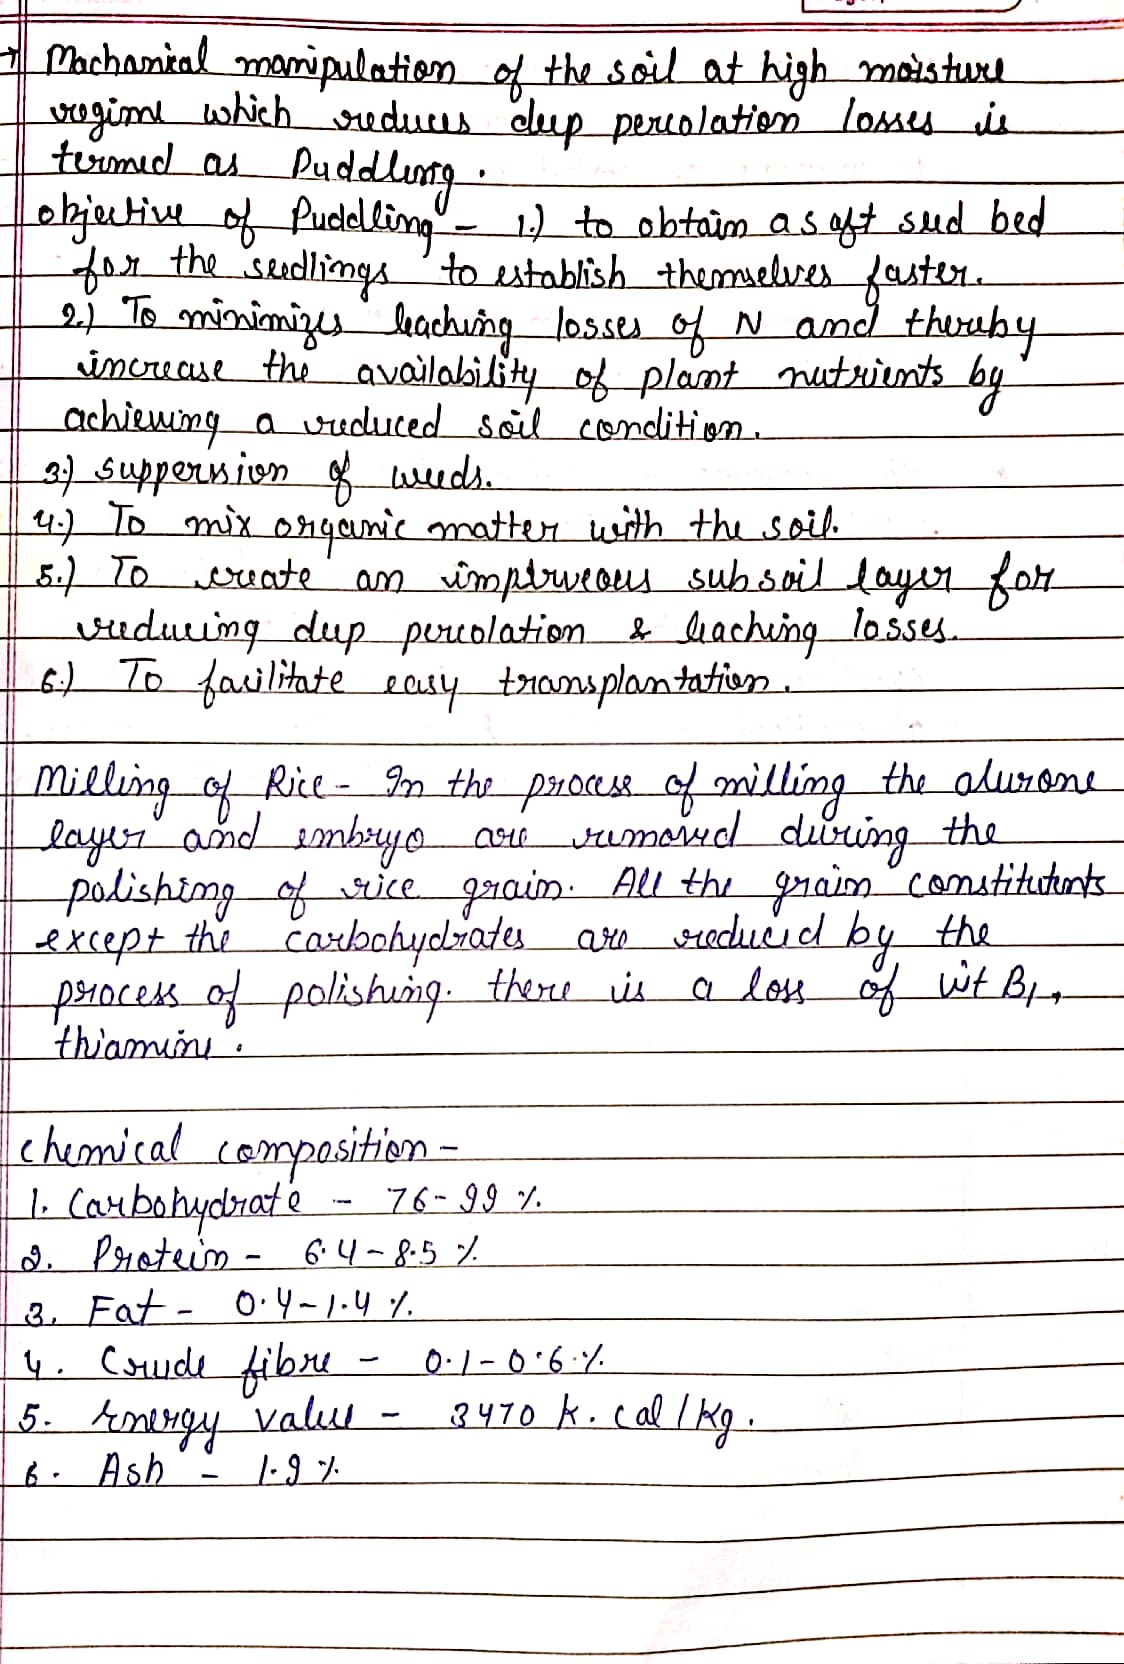 → Machanical manipulation of the soil at high moisture
regime which reduces deep percolation losses is
termed as Puddling.
objective of Puddling - 1.) to obtain a soft seed bed
for the seedlings to establish themselves faster.
2.) To minimizes leaching losses of N and thereby
increase the availability of plant nutrients by
achieving a reduced soil condition.
3.) suppersion of weeds.
4.) To mix organic matter with the soil.
5.) To create an impirveous subsoil layer for
reducing deep percolation & leaching losses.
6.) To facilitate easy transplantation.
Milling of Rice - In the process of milling the alurone
layer and embryo are removed during the
polishing of rice grain. All the grain constitutents
except the carbohydrates are reduced by the
process of polishing. there is a loss of vit B1,
thiamine.
chemical composition -
1. Carbohydrate - 76-99 %.
2. Protein - 6.4-8.5 %.
3. Fat - 0.4-1.4 %.
4. Crude fibre - 0.1-0.6 %.
5. Energy value - 3470 k.cal/kg.
6. Ash - 1.9 %.